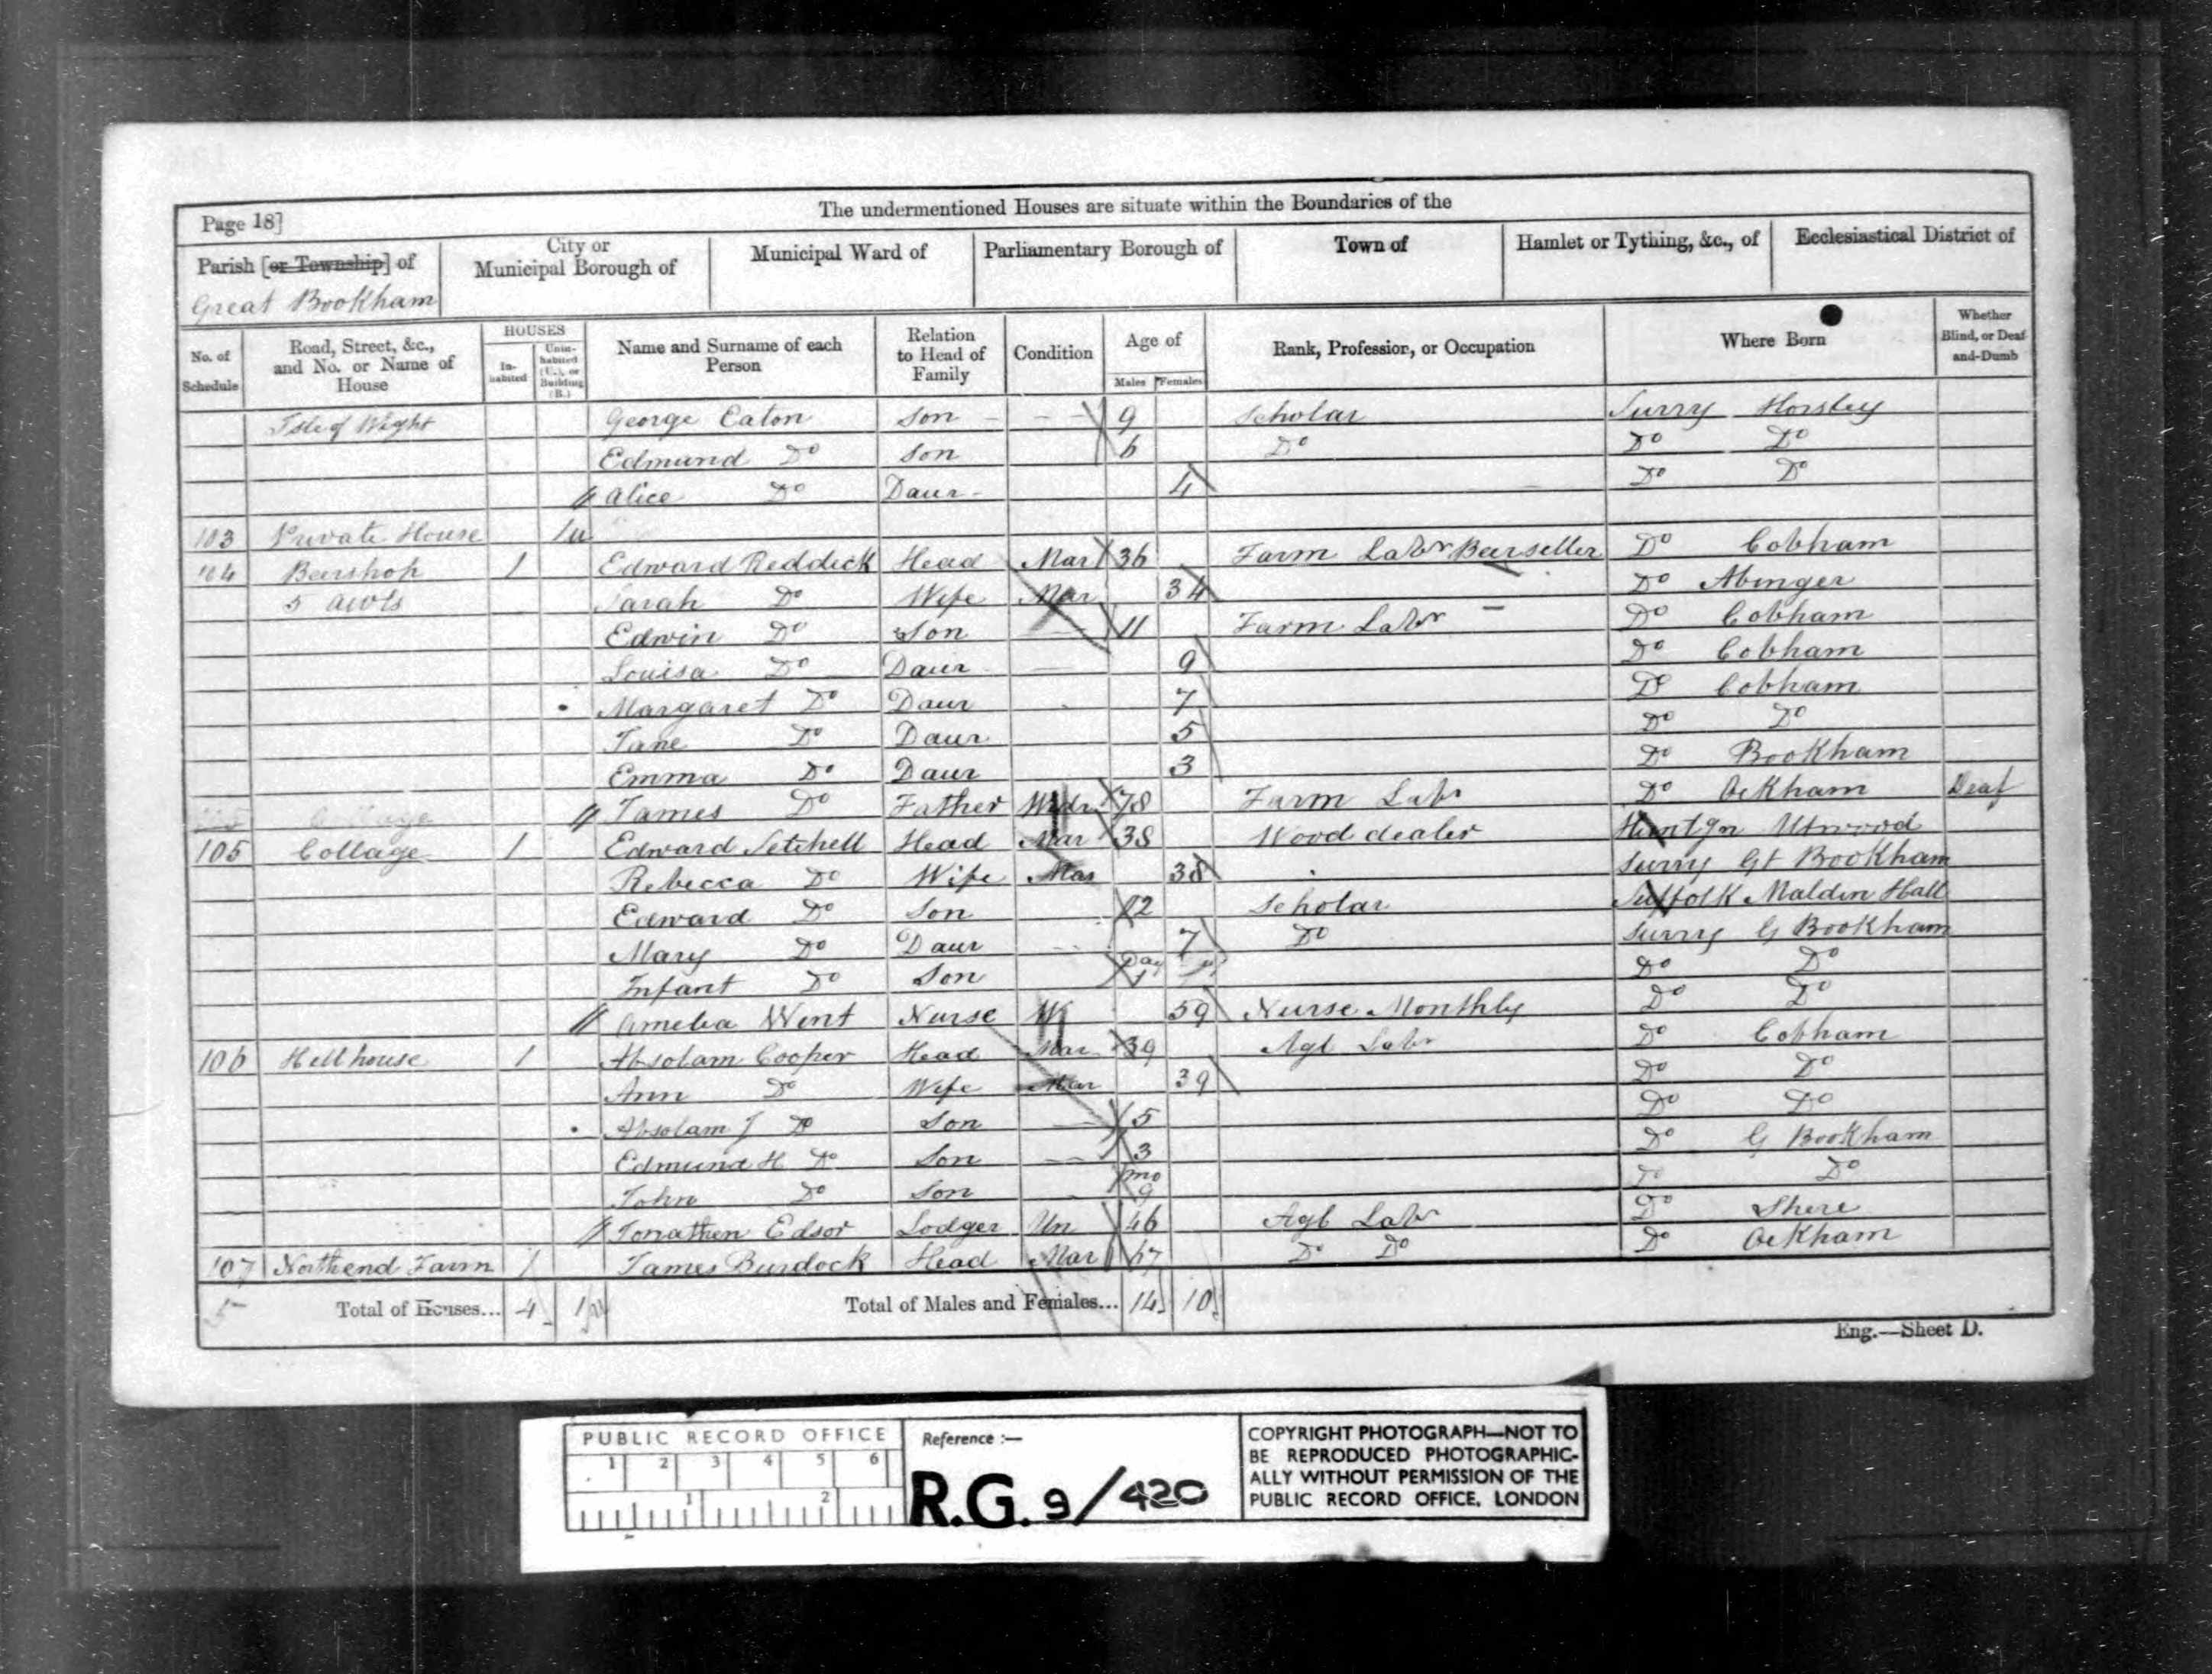 Page 18]
The undermentioned Houses are situate within the Boundaries of the
Parish [or Township] of
City or Municipal Borough of
Municipal Ward of
Parliamentary Borough of
Town of
Hamlet or Tything, &c., of
Ecclesiastical District of
Great Bookham
No. of Schedule
Road, Street, &c., and No. or Name of House
HOUSES
In-habited
Unin-habited (U.), or Building (B.)
Name and Surname of each Person
Relation to Head of Family
Condition
Age of
Males Females
Rank, Profession, or Occupation
Where Born
Whether Blind, or Deaf-and-Dumb
Isle of Wight George Eaton Son 9 Scholar Surry Horsley
Edmund Do Son 6 Do Do Do
Alice Do Daur 4 Do Do
103 Private House 1u
104 Beershop 1 Edward Reddick Head Mar 36 Farm Labr Beerseller Do Cobham
5 Sarah Do Wife Mar 34 Do Abinger
Edwin Do Son 11 Farm Labr Do Cobham
Louisa Do Daur 9 Do Cobham
Margaret Do Daur 7 Do Cobham
Jane Do Daur 5 Do Do
Emma Do Daur 3 Do Bookham
James Do Father Widr 78 Farm Labr Do Ockham Deaf
105 Cottage 1 Edward Setchell Head Mar 38 Wood dealer Huntgn Utwood
Rebecca Do Wife Mar 38 Surry Gt Bookham
Edward Do Son 12 Scholar Suffolk Maldin Hall
Mary Do Daur 7 Do Surry G Bookham
Infant Do Son Day 1 Do Do
Amelia Went Nurse W 59 Nurse Monthly Do Do
106 Hillhouse 1 Absolam Cooper Head Mar 39 Agl Labr Do Cobham
Ann Do Wife Mar 39 Do Do
Absolam J Do Son 5 Do Do
Edmund H Do Son 3 Do G Bookham
John Do Son mo 9 Do Do
Jonathen Edser Lodger Un 46 Agl Labr Do Shere
107 Northend Farm 1 James Burdock Head Mar 67 Do Do Do Ockham
Total of Houses... 4 1u
Total of Males and Females... 14 10
Eng.—Sheet D.
PUBLIC RECORD OFFICE
1 2 3 4 5 6
1 2
Reference :—
R.G. 9/420
COPYRIGHT PHOTOGRAPH—NOT TO
BE REPRODUCED PHOTOGRAPHIC-
ALLY WITHOUT PERMISSION OF THE
PUBLIC RECORD OFFICE, LONDON